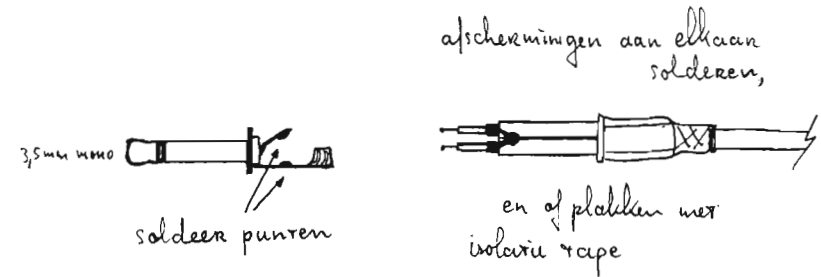 afschermingen aan elkaar
solderen,
3,5mm mono
soldeer punten
en of plakken met
isolatie tape